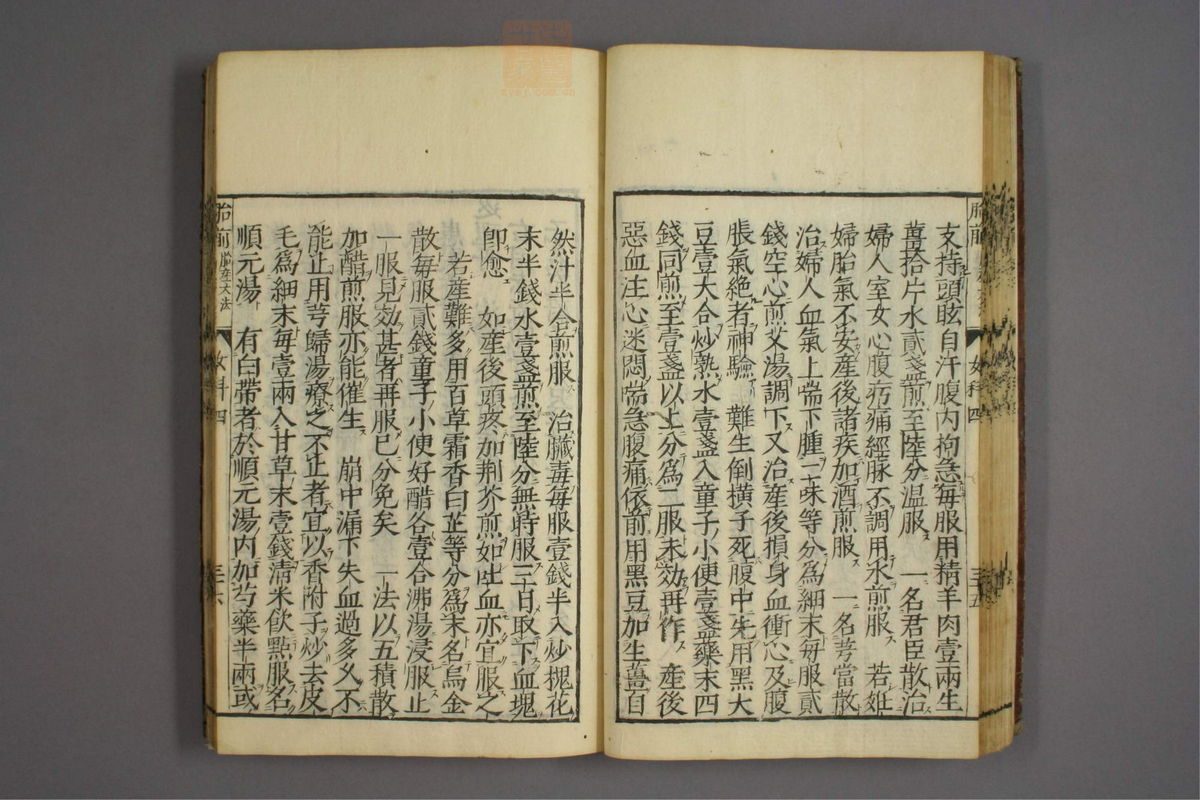 支持頭眩自汗腹内拘急每服用精羊肉壹兩生
薑拾片水貳盞煎至陸分温服　一名君臣散治
婦人室女心腹㽲痛經脉不調用水煎服　若姙
婦胎氣不安産後諸疾加酒煎服　一名芎當散
治婦人血氣上喘下腫二味等分爲細末每服貳
錢空心煎艾湯調下又治産後損身血衝心及腹
脹氣絶者神驗　難生倒橫子死腹中先用黑大
豆壹大合炒熟水壹盞入童子小便壹盞藥末四
錢同煎至壹盞以上分爲二服未効再作　産後
惡血注心迷悶喘急腹痛依前用黑豆加生薑自
胎前
女科四
三十五
然汁半合煎服　治臟毒每服壹錢半入炒槐花
末半錢水壹盞煎至陸分無時服三日取下血塊
卽愈　如産後頭疼加荆芥煎如吐血亦宜服之
若産難多用百草霜香白芷等分爲末名烏金
散每服貳錢童子小便好醋各壹合沸湯浸服止
一服見効甚者再服已分免矣　一法以五積散
加醋煎服亦能催生　崩中漏下失血過多久不
能止用芎歸湯療之不止者宜以香附子炒去皮
毛爲細末每壹兩入甘草末壹錢清米飮點服名
順元湯　有白帶者於順元湯内加芍藥半兩或
胎前
臨産大法
女科四
三十六